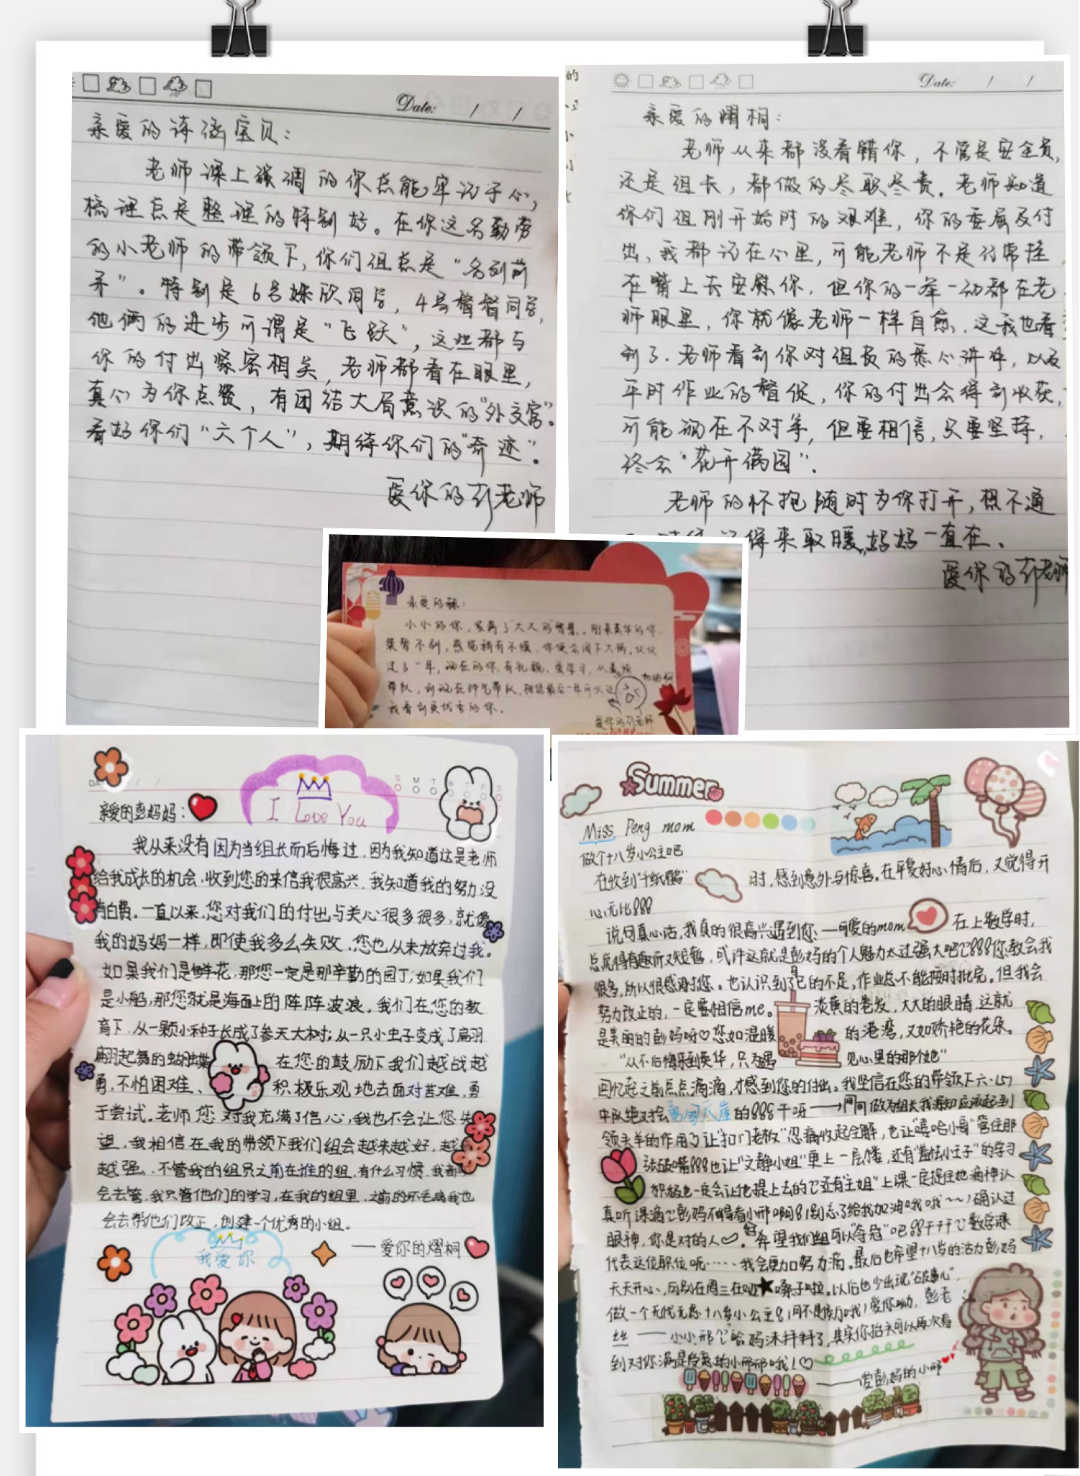 Date: / /
亲爱的诗涵宝贝：
老师课上强调的你总能牢记于心，
梳理总是整理的特别好。在你这名勤劳
的小老师的带领下，你们组总是“名列前
茅”。特别是6号姝欣同学，4号督督同学，
他俩的进步可谓是“飞跃”，这些都与
你的付出紧密相关，老师都看在眼里，
真心为你点赞，有团结大局意识的“外交官”。
看好你们“六个人”，期待你们的“奇迹”。
爱你的彭老师
Date: / /
亲爱的熠桐：
老师从来都没看错你，不管是安全员，
还是组长，都做的尽职尽责。老师知道
你们组刚开始时的艰难，你的委屈及付
出，我都记在心里，可能老师不是经常挂
在嘴上去安慰你，但你的一举一动都在老
师眼里，你就像老师一样自愈，这我也看
到了。老师看到你对组员的悉心讲解，以及
平时作业的督促，你的付出会得到收获，
可能现在不对等，但要相信，只要坚持，
终会“花开满园”。
老师的怀抱随时为你打开，想不通
记得来取暖，妈妈一直在、
爱你的彭老师
亲爱的
小小的你，充满了大大的智慧。刚来英华的你，
桀骜不驯，感觉稍有不顺，你便会闹下大祸，仅仅
过了一年，现在的你，有礼貌、爱学习，从
带队，到现在帅气带队，相信最后一年可以让
我看到更优秀的你。
爱你的彭老师
I Love You
亲爱的彭妈妈：
我从来没有因为当组长而后悔过，因为我知道这是老师
给我成长的机会，收到您的来信我很高兴，我知道我的努力没
有白费。一直以来，您对我们的付出与关心很多很多，就像
我的妈妈一样，即使我多么失败，您也从未放弃过我。
如果我们是鲜花，那您一定是那辛勤的园丁；如果我们
是小船，那您就是海面上的阵阵波浪。我们在您的教
育下，从一颗小种子长成了参天大树；从一只小虫子变成了扇羽
翩翩起舞的蝴蝶 在您的鼓励下我们越战越
勇，不怕困难、 积极乐观地去面对苦难，勇
于尝试。老师您对我充满了信心，我也不会让您失
望，我相信在我的带领下我们组会越来越好，越
越强，不管我的组员之前在谁的组，有什么习惯，我都
会去管，我只管他们的学习，在我的组里，之前的坏毛病我也
会去帮他们改正，创建一个优秀的小组。
我爱你
—— 爱你的熠桐
Summer
Miss Peng mom
做个十八岁小公主吧
在收到“纸鹅” 时，感到意外与惊喜。在平复好心情后，又觉得开
心无比888
说句真心话，我真的很高兴遇到您——可爱的mom 在上数学时，
总觉得有趣而又短暂，或许这就是彭妈的个人魅力太过强大吧~888您教会我
很多，所以很感谢您。也认识到了自己的不足，作业总不能按时批完。但我会
努力改正的，一定要相信me。 淡黄的卷发，大大的眼睛，这就
是美丽的彭妈呀♡您如温暖 的港湾，又如娇艳的花朵。
“从不后悔来到英华，只为遇 见心里的那个她”
回忆起之前点点滴滴，才感到您的付出。我坚信在您的带领下六·七
中队绝对会 的888干呀——同时做为组长我深知应该起到
领头羊的作用
“文静小姐”更上一层楼，还有 的学习
积极也一定会让他提上去的~还有“主姐”上课一定捉住她滴神认
真听课滴~彭妈不得看小邢啊8！别忘了给我加油哦哦~~！确认过
眼神，你是对的人♡。希望我们组可以“夺冠”吧8干干~数学课
代表这位职位呢……我会更加努力滴。最后也希望十八岁的活力彭妈
天天开心，
做一个无忧无虑十八岁小公主8
丝——小小邢
到对你满是
——爱彭妈的小邢